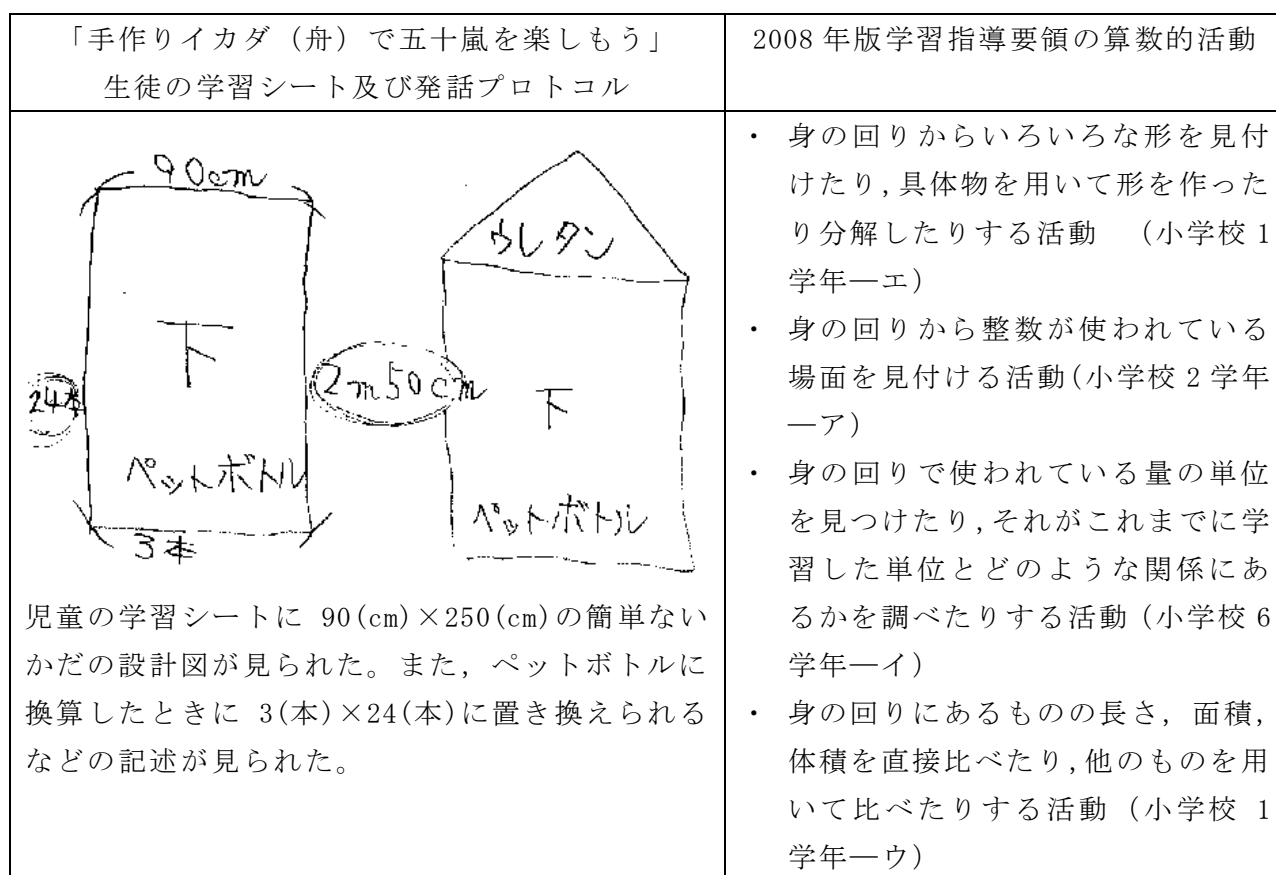 「手作りイカダ（舟）で五十嵐を楽しもう」
生徒の学習シート及び発話プロトコル
2008 年版学習指導要領の算数的活動
90cm
ウレタン
下
24本
2m50cm
下
ペットボトル
ペットボトル
3本
児童の学習シートに 90(cm)×250(cm)の簡単ない
かだの設計図が見られた。また，ペットボトルに
換算したときに 3(本)×24(本)に置き換えられる
などの記述が見られた。
・ 身の回りからいろいろな形を見付
けたり,具体物を用いて形を作った
り分解したりする活動 （小学校 1
学年―エ）
・ 身の回りから整数が使われている
場面を見付ける活動(小学校 2 学年
―ア）
・ 身の回りで使われている量の単位
を見つけたり,それがこれまでに学
習した単位とどのような関係にあ
るかを調べたりする活動（小学校 6
学年―イ）
・ 身の回りにあるものの長さ，面積，
体積を直接比べたり,他のものを用
いて比べたりする活動（小学校 1
学年―ウ）